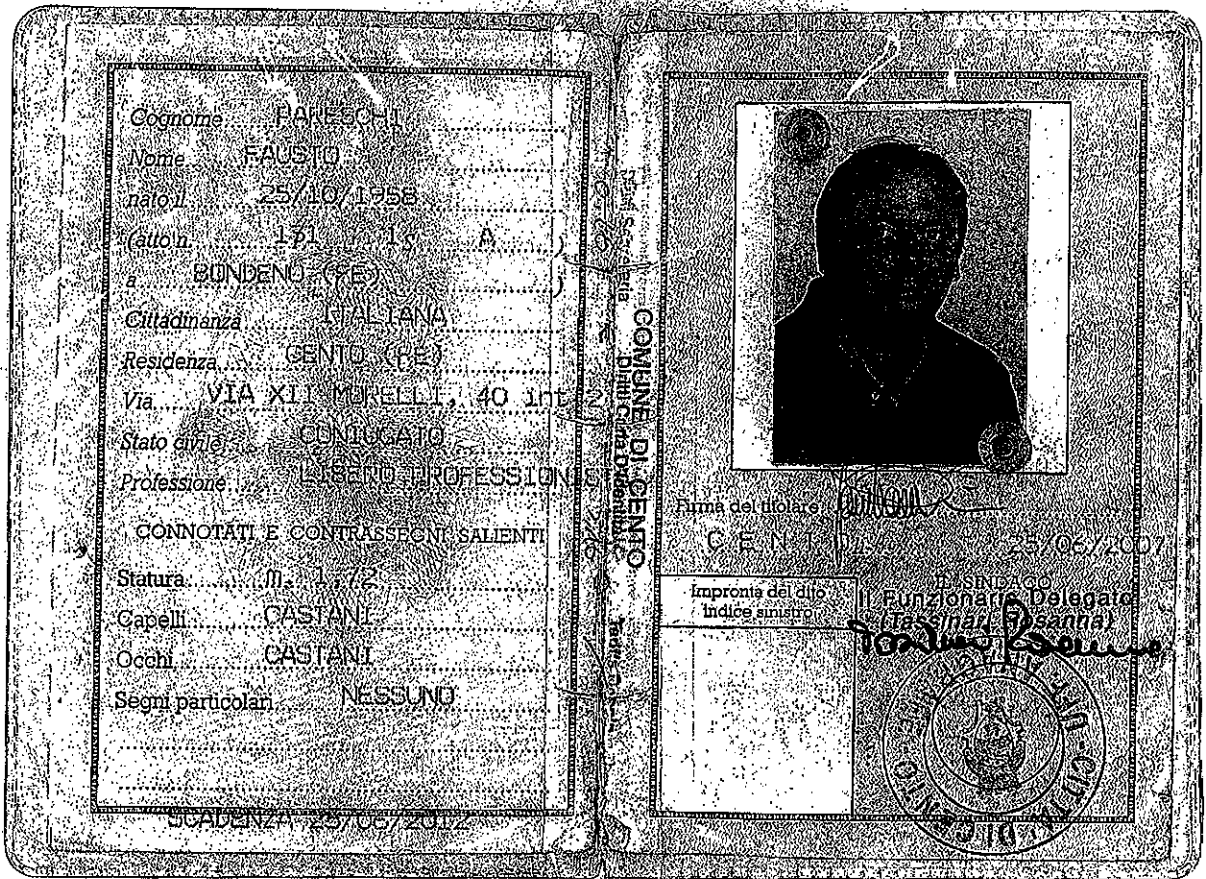 Cognome PARESCHI
Nome FAUSTO
nato il 25/10/1958
(atto n. 171 1 s. A )
a BONDENO (FE) )
Cittadinanza ITALIANA
Residenza CENTO (FE)
Via VIA XII MORELLI, 40 int 2
Stato civile CONIUGATO
Professione LIBERO PROFESSIONIS
CONNOTATI E CONTRASSEGNI SALIENTI
Statura m. 1,72
Capelli CASTANI
Occhi CASTANI
Segni particolari NESSUNO
SCADENZA 25/06/2012
COMUNE DI CENTO
Firma del titolare
CENTO 25/06/2007
Impronta del dito
indice sinistro
IL SINDACO
Il Funzionario Delegato
(Tassinari Rosanna)
DI CENTO